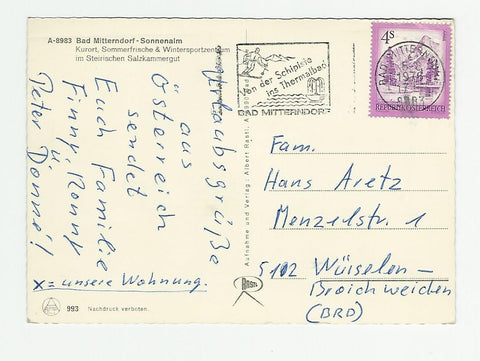 A-8983 Bad Mitterndorf - Sonnenalm
Kurort, Sommerfrische & Wintersportzentrum
im Steirischen Salzkammergut
Von der Schipiste
ins Thermalbad
BAD MITTERNDORF
4s
REPUBLIK ÖSTERREICH
Urlaubsgrüße
aus
Österreich
sendet
Euch Familie
Finny, Ronny
u.
Peter Dönné!
x = unsere Wohnung.
Fam.
Hans Aretz
Menzelstr. 1
5102 Würselen –
Broichweiden
(BRD)
Aufnahme und Verlag: Albert Rastl,
Rastl
993 Nachdruck verboten.